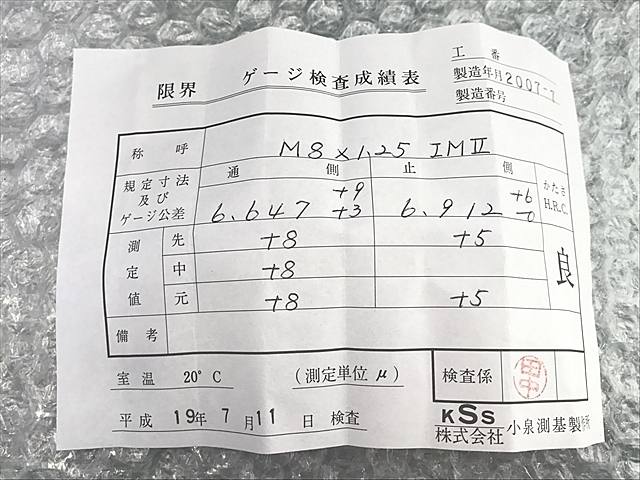 工番
製造年月 2007-7
製造番号
限界 ゲージ検査成績表
称呼 M8×1.25 IMⅡ
通側 止側
規定寸法及びゲージ公差 6.647 +9 +3 6.912 +6 -0 かたさ H.R.C.
測定値 先 +8 +5 良
中 +8
元 +8 +5
備考
室温 20°C (測定単位μ) 検査係
平成 19年 7月 11日 検査
KSS
株式会社 小泉測基製作所